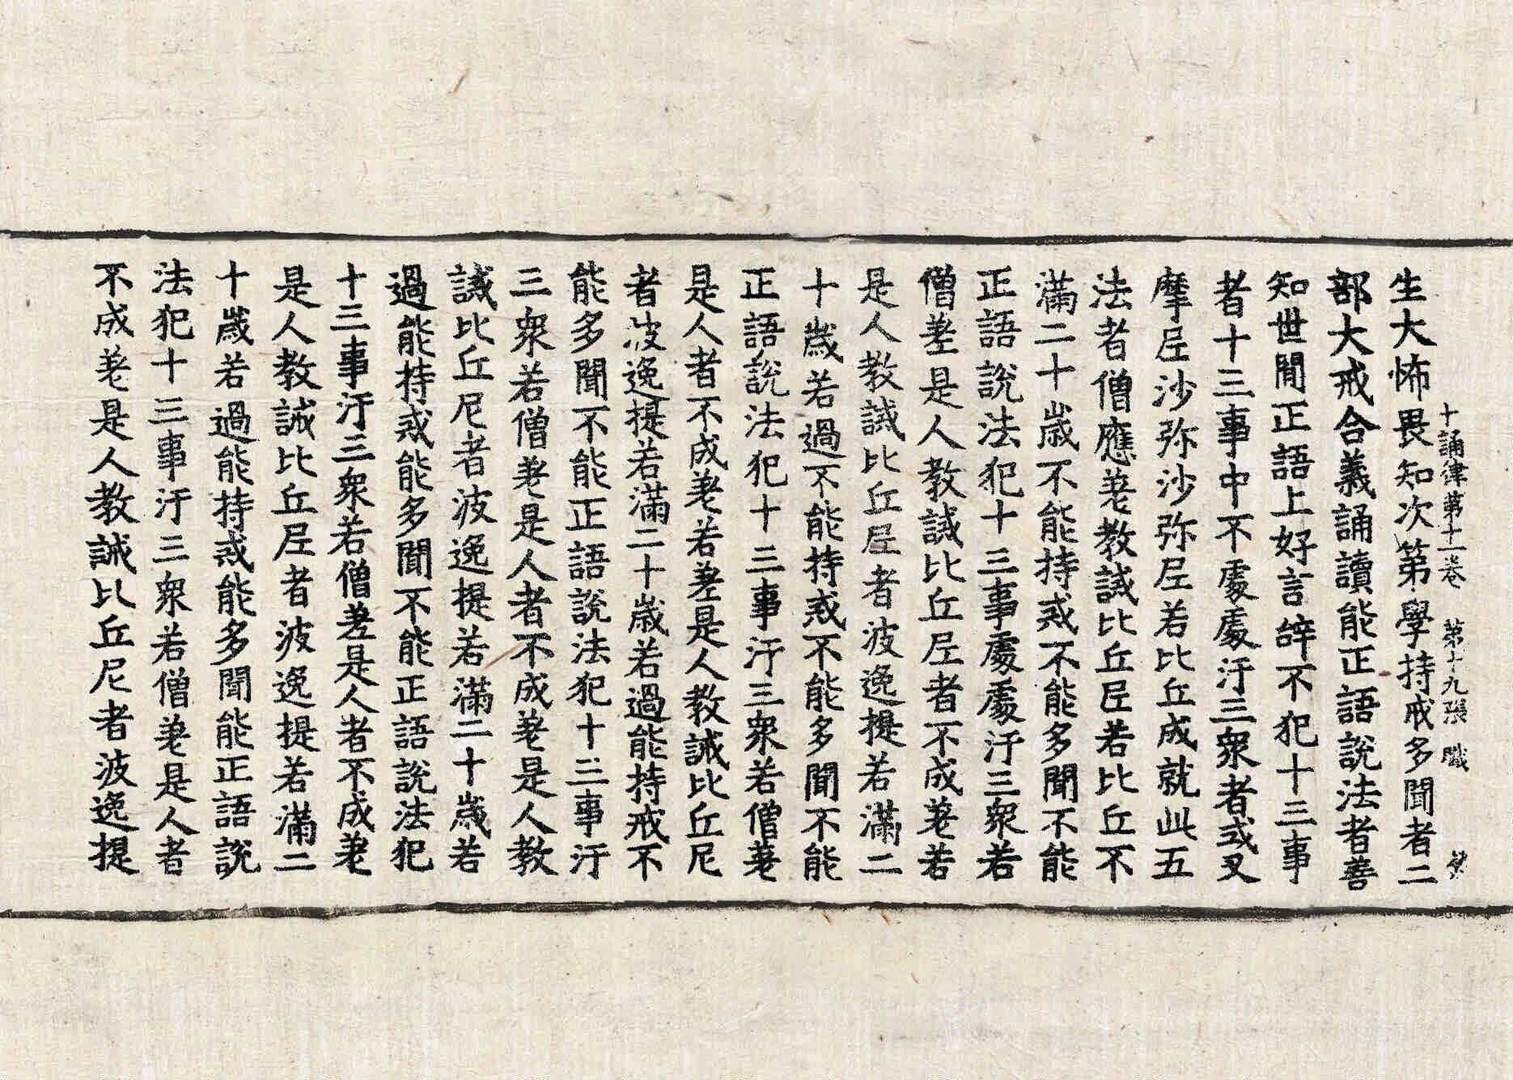 十誦律第十一卷 第十九張 職
生大怖畏知次第學持戒多聞者二
部大戒合義誦讀能正語說法者善
知世間正語上好言辝不犯十三事
者十三事中不處處汙三衆者或叉
摩尼沙弥沙弥尼若比丘成就此五
法者僧應差教誡比丘尼若比丘不
滿二十歲不能持戒不能多聞不能
正語說法犯十三事處處汙三衆若
僧差是人教誡比丘尼者不成差若
是人教誡比丘尼者波逸提若滿二
十歲若過不能持戒不能多聞不能
正語說法犯十三事汙三衆若僧差
是人者不成差若差是人教誡比丘尼
者波逸提若滿二十歲若過能持戒不
能多聞不能正語說法犯十三事汙
三衆若僧差是人者不成差是人教
誡比丘尼者波逸提若滿二十歲若
過能持戒能多聞不能正語說法犯
十三事汙三衆若僧差是人者不成差
是人教誡比丘尼者波逸提若滿二
十歲若過能持戒能多聞能正語說
法犯十三事汙三衆若僧差是人者
不成差是人教誡比丘尼者波逸提